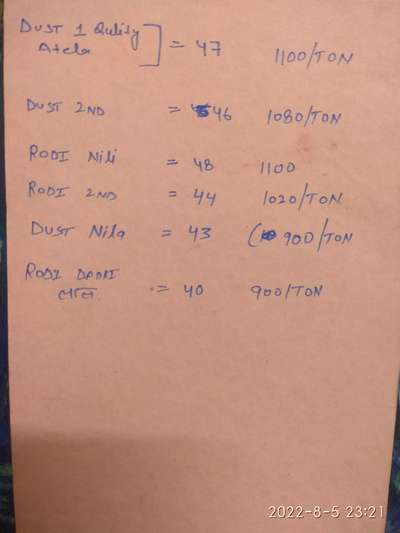 DUST 1 Qulity
Atela ] = 47 1100/TON
DUST 2ND = 46 1080/TON
RODI Nili = 48 1100
RODI 2ND = 44 1020/TON
DUST Nila = 43 (900/TON
RODI DADRI
लाल = 40 900/TON
2022-8-5 23:21